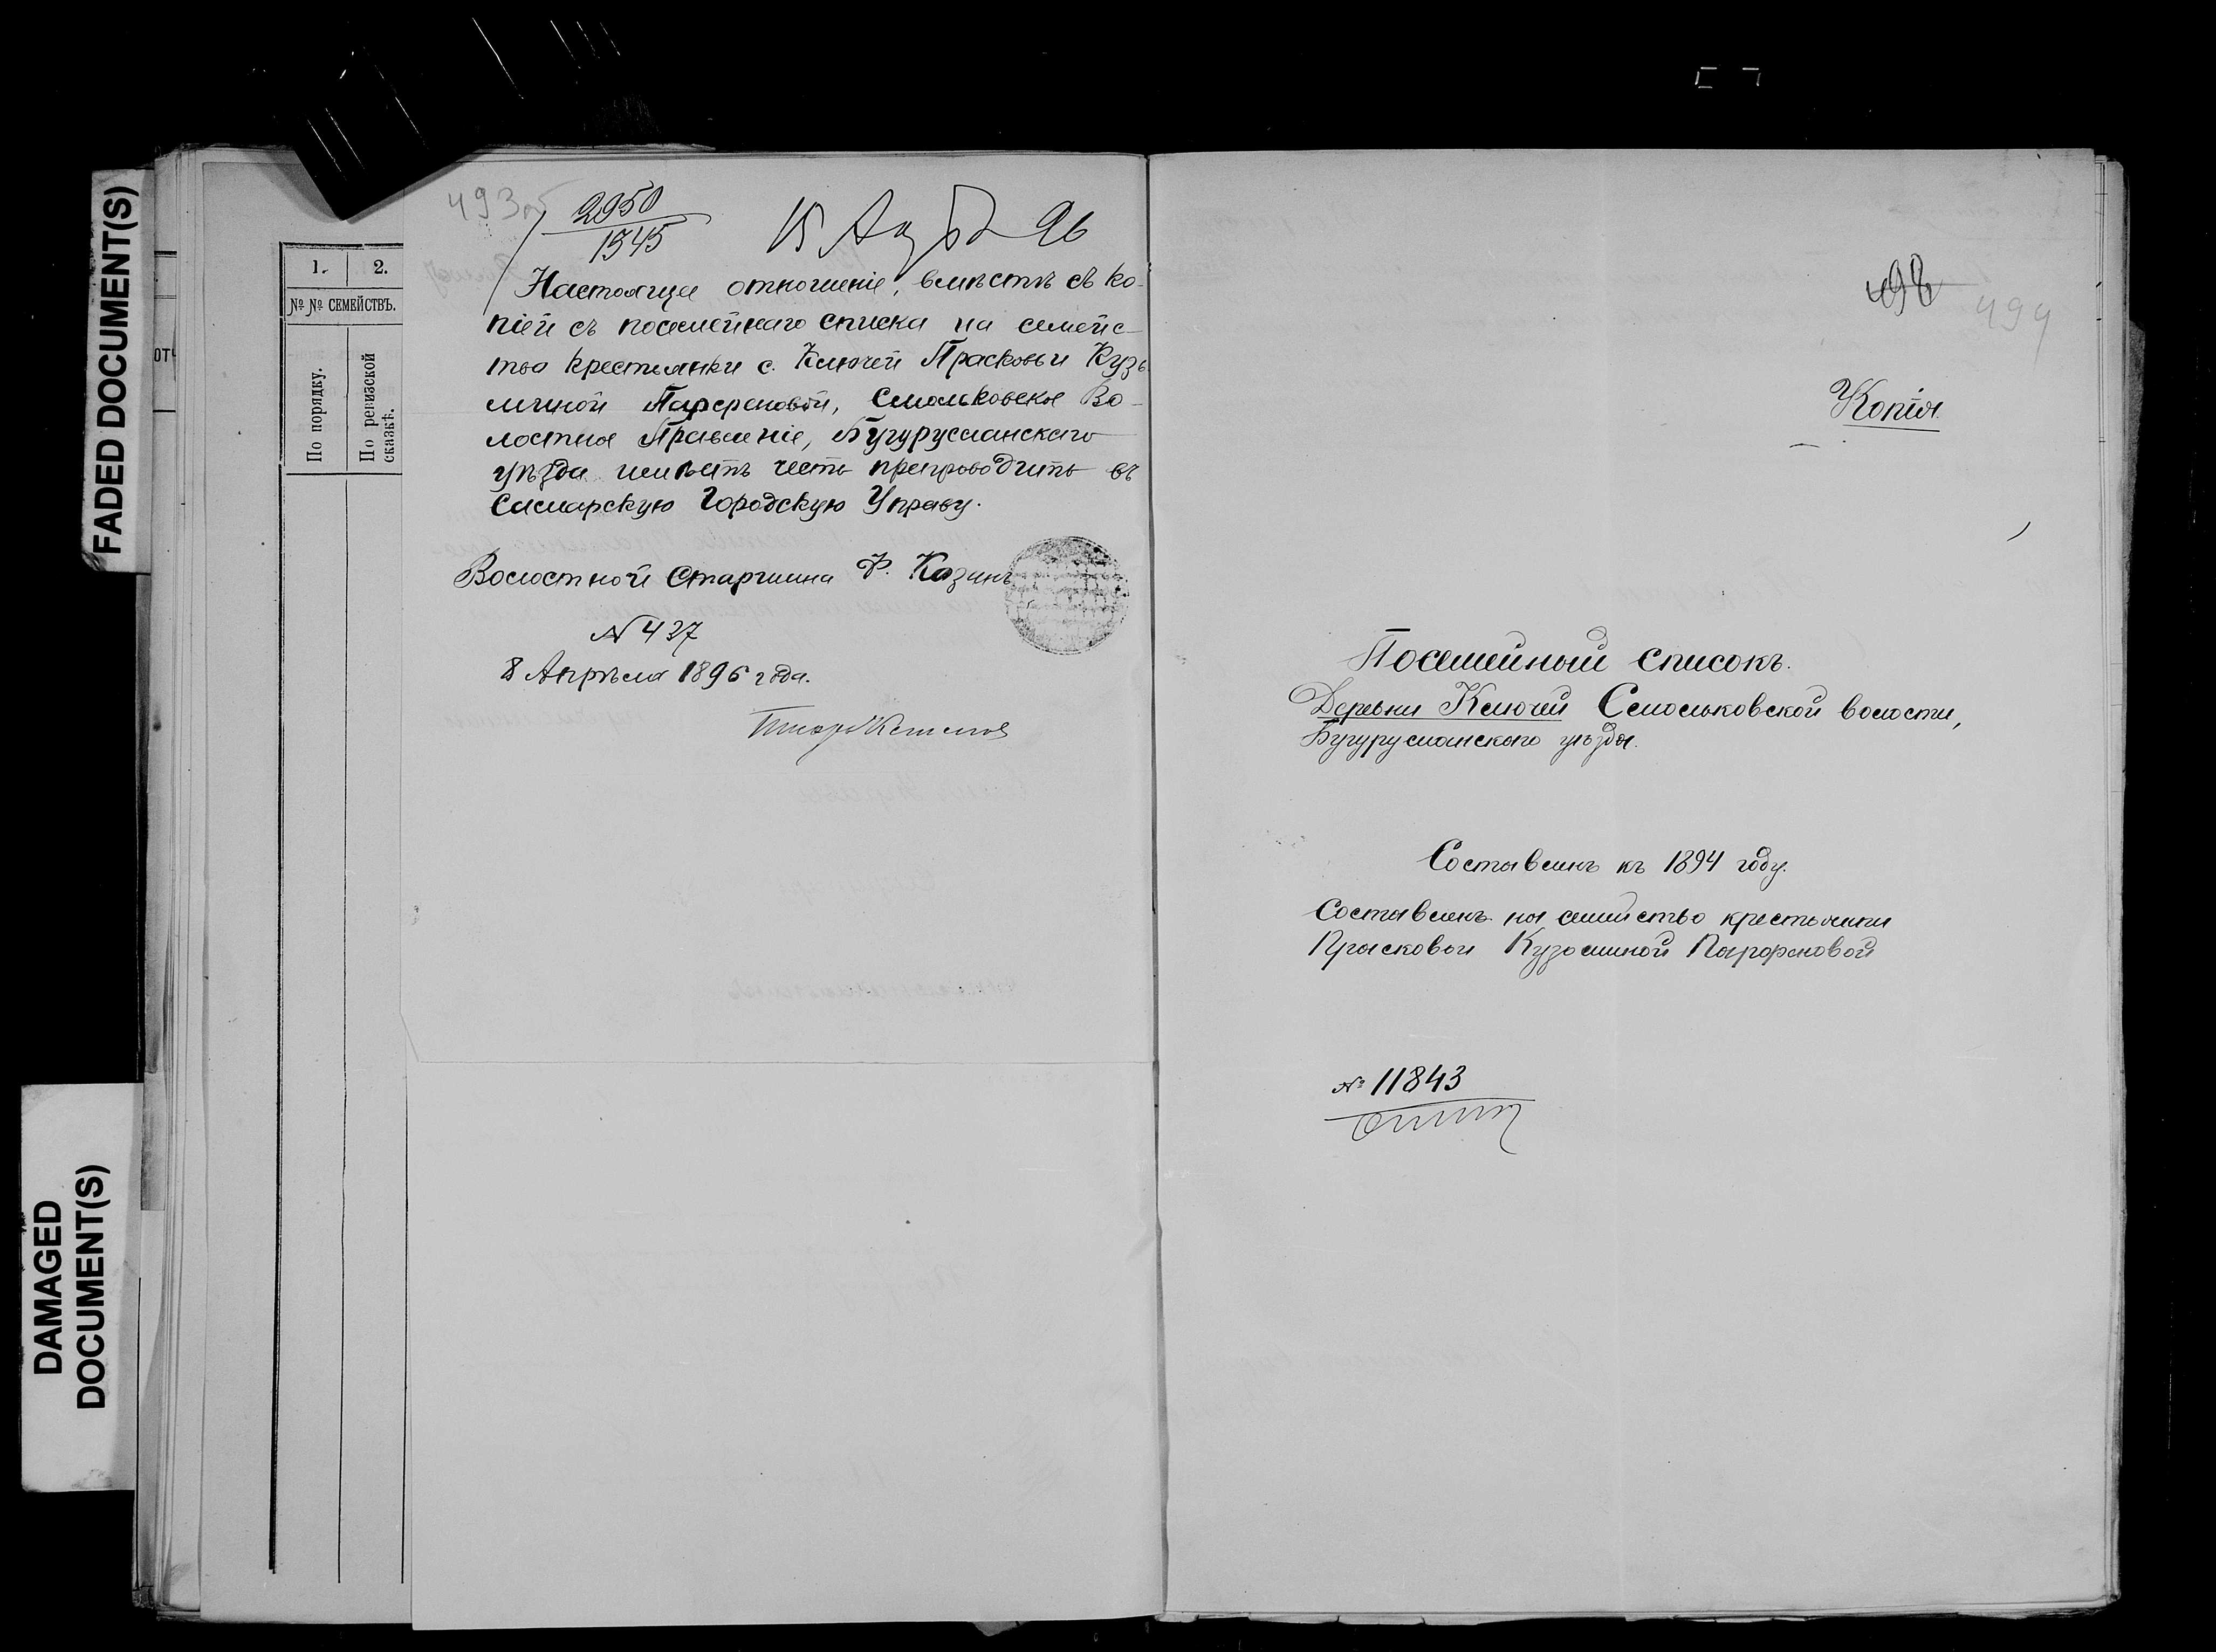 FADED DOCUMENT(S)
DAMAGED
DOCUMENT(S)
1.
2.
№ № СЕМЕЙСТВЪ.
По порядку.
По ревизской
сказкѣ.
493об
2950
1545
15 96
Настоящее отношеніе, вмѣстѣ съ ко-
піей съ посемейнаго списка на семейс-
тво крестьянки с. Ключей Прасковьи Кузь
миной Парфеновой, Смольковское Во-
лостное Правленіе, Бугурусланскаго
уѣзда имѣетъ честь препроводить въ
Самарскую Городскую Управу.
Волостной Старшина Ф. Казинъ
N 437
8 Апрѣля 1896 года.
498
494
Копія
Посемейный списокъ.
Деревни Ключей Смольковской волости,
Бугурусланскаго уѣзда.
Составленъ къ 1894 году.
Составленъ на семейство крестьянки
Прасковьи Кузьминой Парфеновой
№ 11843